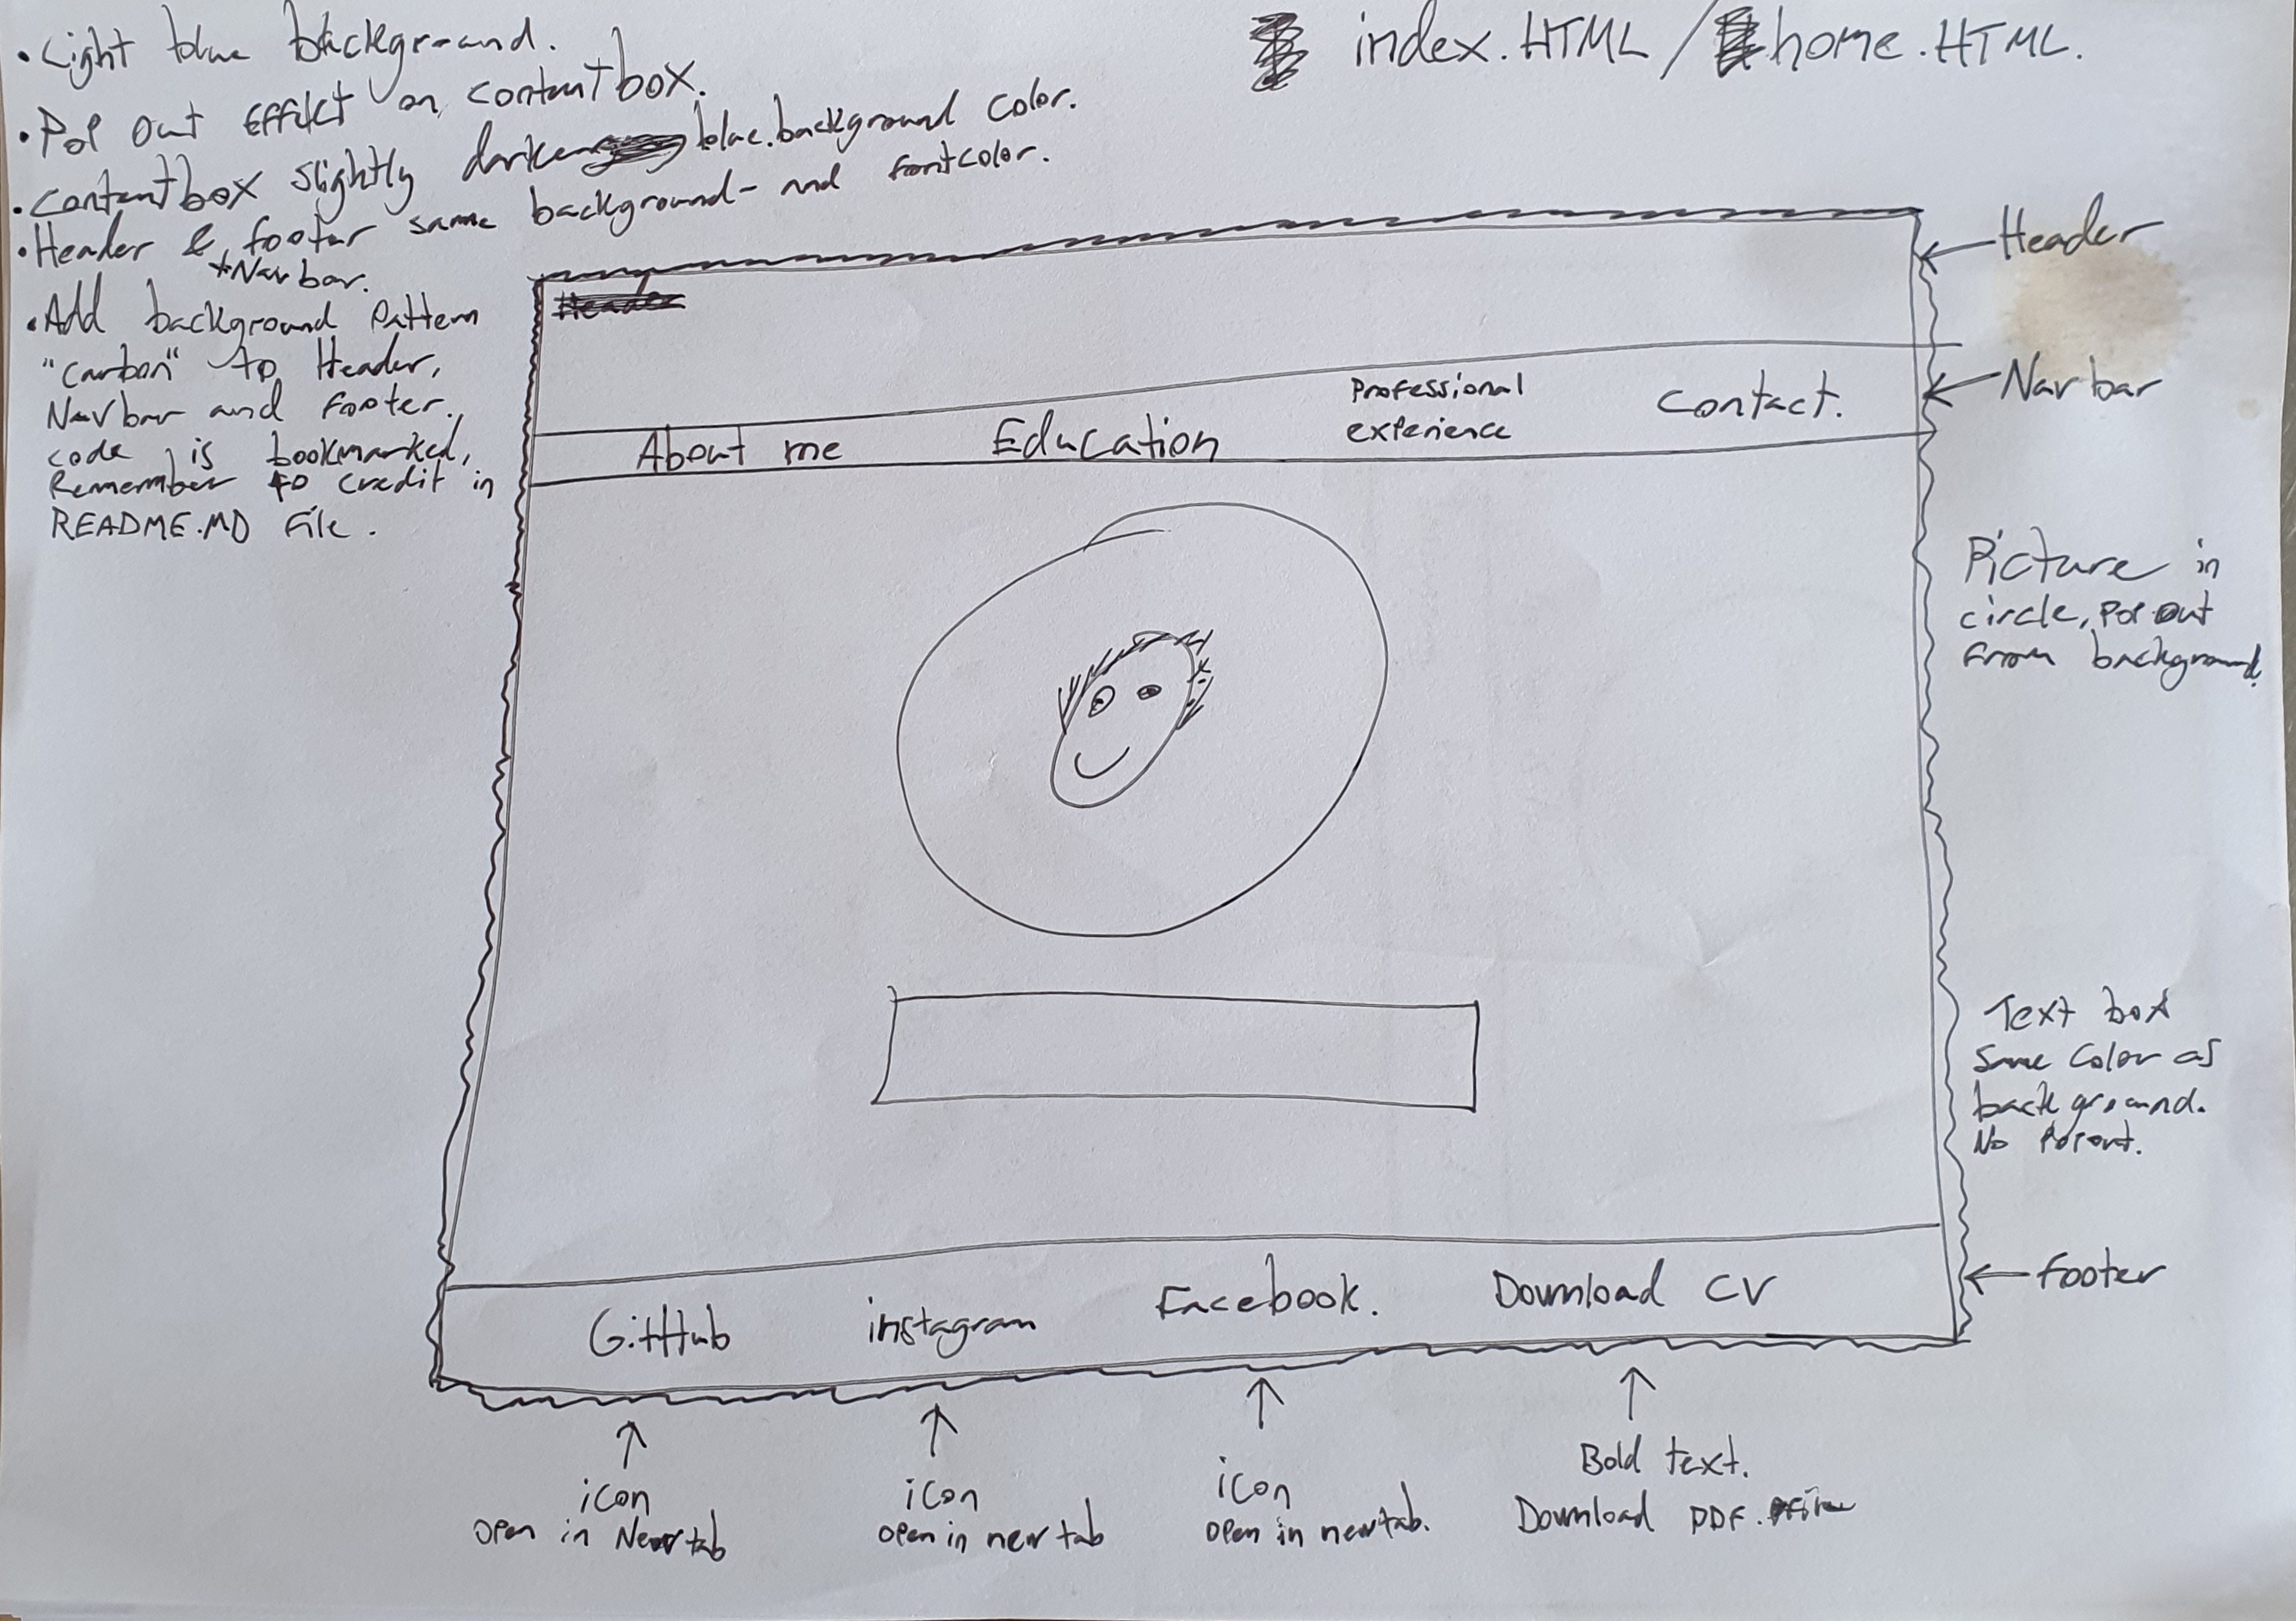 index.HTML / home.HTML.
• Light blue background.
• Pop out effekt on contentbox.
• contentbox slightly darker blue.background color.
• Header & footer same background- and fontcolor.
+Navbar.
• Add background pattern
"carbon" to Header,
Navbar and footer.
code is bookmarked,
Remember to credit in
README.MD File.
Header
Header
Navbar
About me Education Professional experience Contact.
Picture in
circle, Pop out
from background.
Text box
same color as
background.
No Popout.
GitHub instagram Facebook. Download CV
footer
icon
open in New tab
icon
open in new tab
icon
open in new tab.
Bold text.
Download PDF.